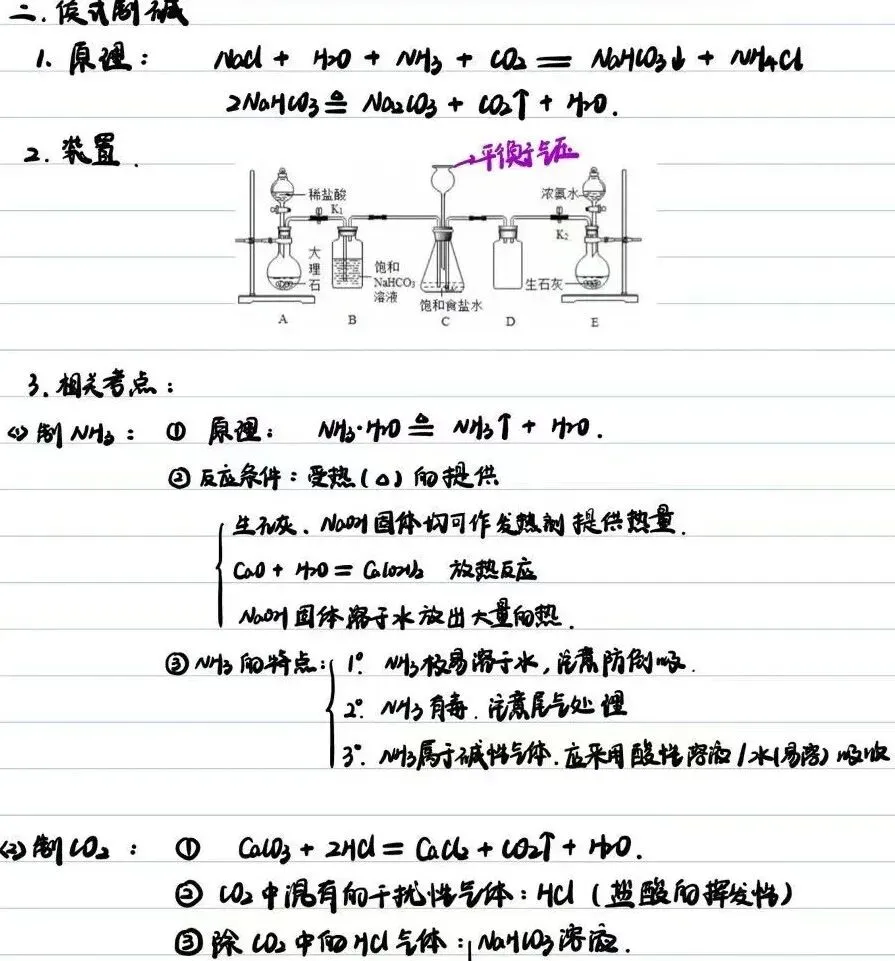 二. 侯式制碱
1. 原理: NaCl + H2O + NH3 + CO2 = NaHCO3↓ + NH4Cl
2NaHCO3 ≜ Na2CO3 + CO2↑ + H2O.
2. 装置.
平衡气压
稀盐酸
浓氨水
K1
K2
大理石
饱和NaHCO3溶液
饱和食盐水
生石灰
A B C D E
3. 相关考点:
(1) 制NH3: ① 原理: NH3·H2O ≜ NH3↑ + H2O.
② 反应条件: 受热(△)的提供
生石灰、NaOH固体均可作发热剂提供热量.
CaO + H2O = Ca(OH)2 放热反应
NaOH固体溶于水放出大量的热.
③ NH3的特点: 1°. NH3极易溶于水,注意防倒吸.
2°. NH3有毒.注意尾气处理
3°. NH3属于碱性气体.应采用酸性溶液/水(易溶)吸收
(2) 制CO2: ① CaCO3 + 2HCl = CaCl2 + CO2↑ + H2O.
② CO2中混有的干扰性气体: HCl (盐酸的挥发性)
③ 除CO2中的HCl气体: NaHCO3溶液.